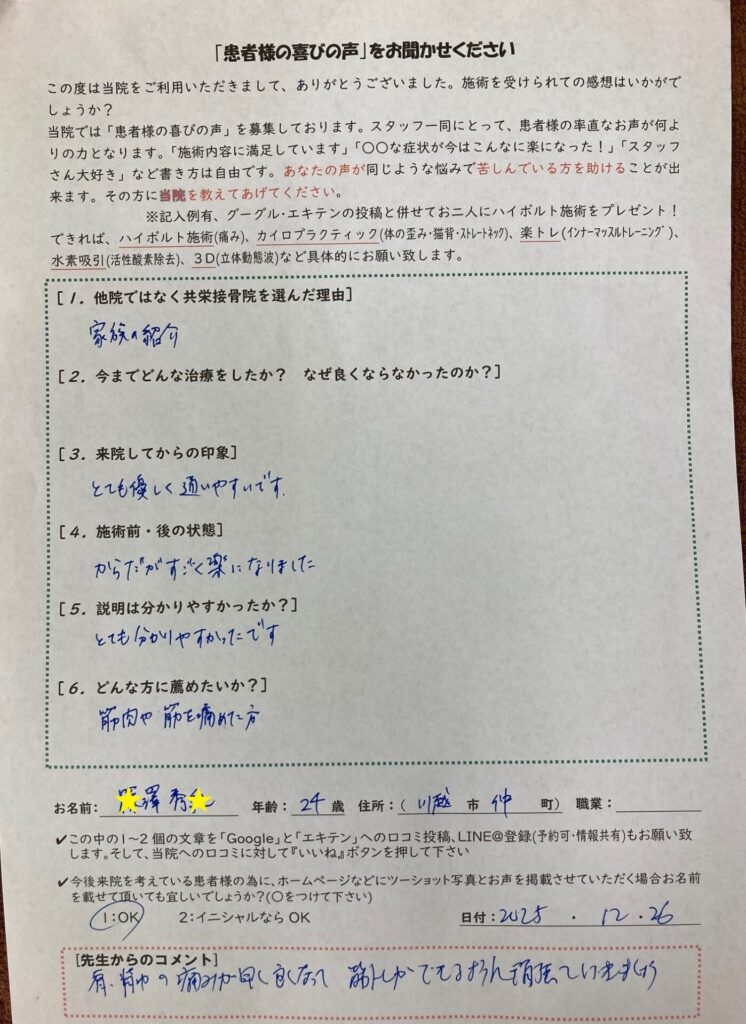 「患者様の喜びの声」をお聞かせください
この度は当院をご利用いただきまして、ありがとうございました。施術を受けられての感想はいかがで
しょうか？
当院では「患者様の喜びの声」を募集しております。スタッフ一同にとって、患者様の率直なお声が何よ
りの力となります。「施術内容に満足しています」「〇〇な症状が今はこんなに楽になった！」「スタッフ
さん大好き」など書き方は自由です。あなたの声が同じような悩みで苦しんでいる方を助けることが出
来ます。その方に当院を教えてあげてください。
※記入例有、グーグル・エキテンの投稿と併せてお二人にハイボルト施術をプレゼント！
できれば、ハイボルト施術(痛み)、カイロプラクティック(体の歪み・猫背・ストレートネック)、楽トレ(インナーマッスルトレーニング)、
水素吸引(活性酸素除去)、３D(立体動態波)など具体的にお願い致します。
[１．他院ではなく共栄接骨院を選んだ理由]
家族の紹介
[２．今までどんな治療をしたか？　なぜ良くならなかったのか？]
[３．来院してからの印象]
とても優しく通いやすいです.
[４．施術前・後の状態]
からだがすごく楽になりました
[５．説明は分かりやすかったか？]
とても分かりやすかったです
[６．どんな方に薦めたいか？]
筋肉や筋を痛めた方
お名前： 澤 年齢：24歳 住所：（川越 市 仲 町） 職業：
✔この中の１～２個の文章を「Google」と「エキテン」への口コミ投稿、LINE@登録(予約可・情報共有)もお願い致
します。そして、当院への口コミに対して『いいね』ボタンを押して下さい
✔今後来院を考えている患者様の為に、ホームページなどにツーショット写真とお声を掲載させていただく場合お名前
を載せて頂いても宜しいでしょうか？(〇をつけて下さい)
１：OK　２：イニシャルなら OK　日付：2025 ・ 12 ・ 26
[先生からのコメント]
の痛みが早く良くなって 筋トレができるよう 頑張っていきましょう